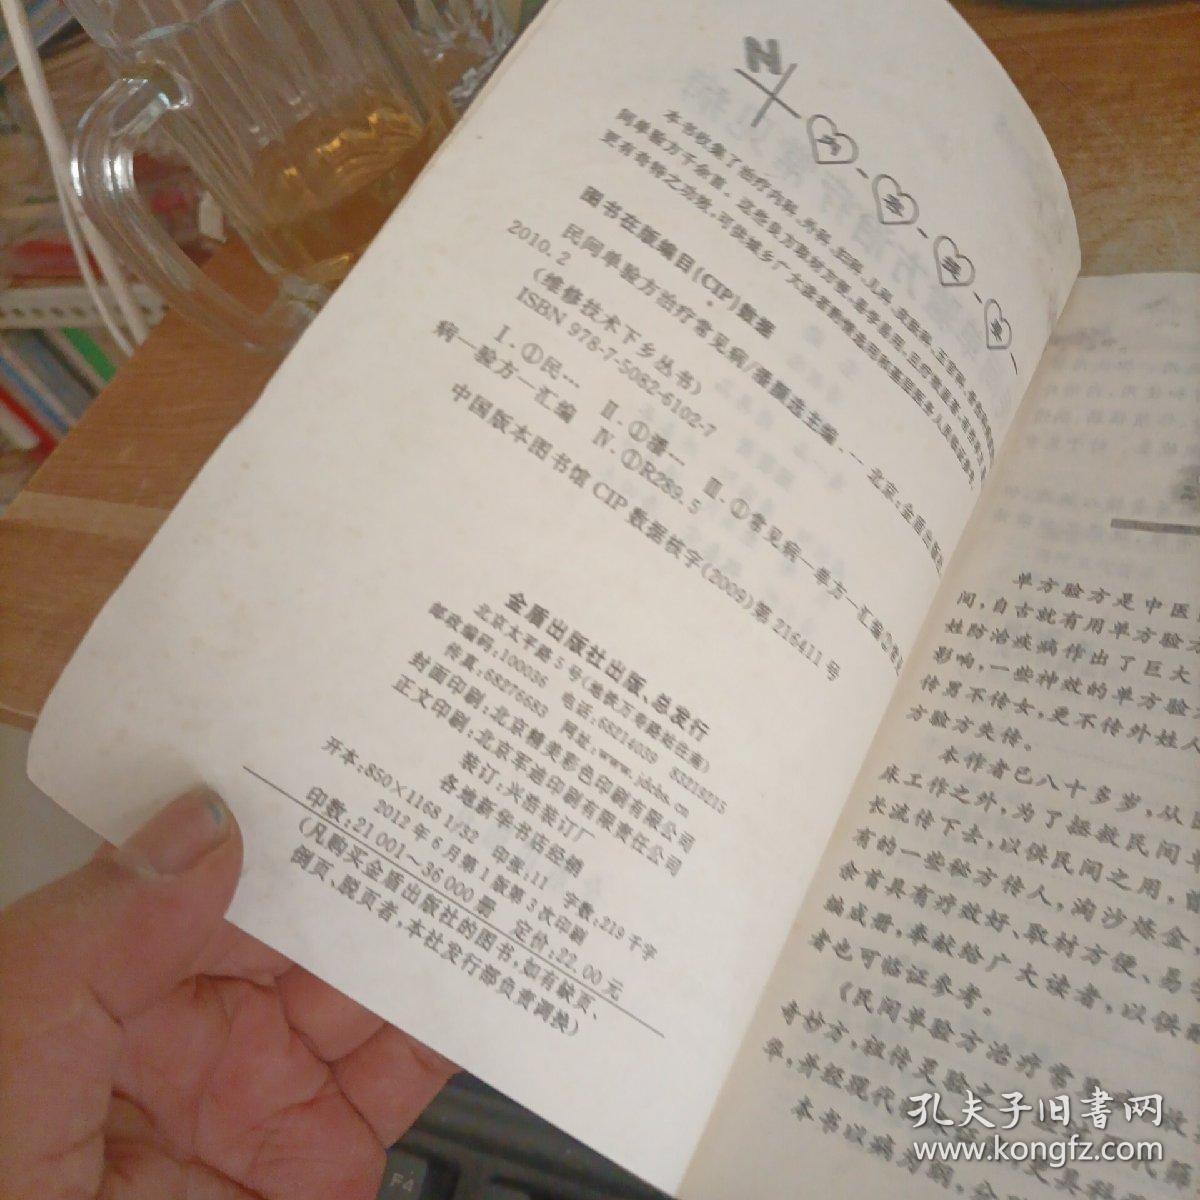 N
内容提要
本书收集了治疗内科、外科、妇科、儿科、
间单验方千余首。这些良方取材方便、易学易用、且疗效显著,
更有奇特之功效,可供城乡广大读者
图书在版编目(CIP)数据
民间单验方治疗常见病/潘颐选主编.--北京:金盾出版社,
2010.2
(维修技术下乡丛书)
ISBN 978-7-5082-6102-7
Ⅰ.①民… Ⅱ.①潘… Ⅲ.①常见病—单方—汇编②常见
病—验方—汇编 Ⅳ.①R289.5
中国版本图书馆 CIP 数据核字(2009)第 216411 号
金盾出版社出版、总发行
北京太平路5号(地铁万寿路站往南)
邮政编码:100036 电话:68214039 83219215
传真:68276683 网址:www.jdcbs.cn
封面印刷:北京精美彩色印刷有限公司
正文印刷:北京军迪印刷有限责任公司
装订:兴浩装订厂
各地新华书店经销
开本:850×1168 1/32 印张:11 字数:219千字
2012年6月第1版第3次印刷
印数:21 001~36 000册 定价:22.00元
(凡购买金盾出版社的图书,如有缺页、
倒页、脱页者,本社发行部负责调换)
单方验方是中医
间,自古就有用单方验方
姓防治疾病作出了巨大
影响,一些神效的单方验
传男不传女,更不传外姓人
方验方失传。
本作者已八十多岁,从
床工作之外,为了拯救民间
长流传下去,以供民间之用,曾
有的一些秘方传人,淘沙炼金
余首具有疗效好、取材方便、易
编成册,奉献给广大读者,以供
者也可临证参考。
《民间单验方治疗常见
奇妙方,祖传灵验之
萃,并经现代
本书以病为纲,分
孔夫子旧书网
www.kongfz.com
F4